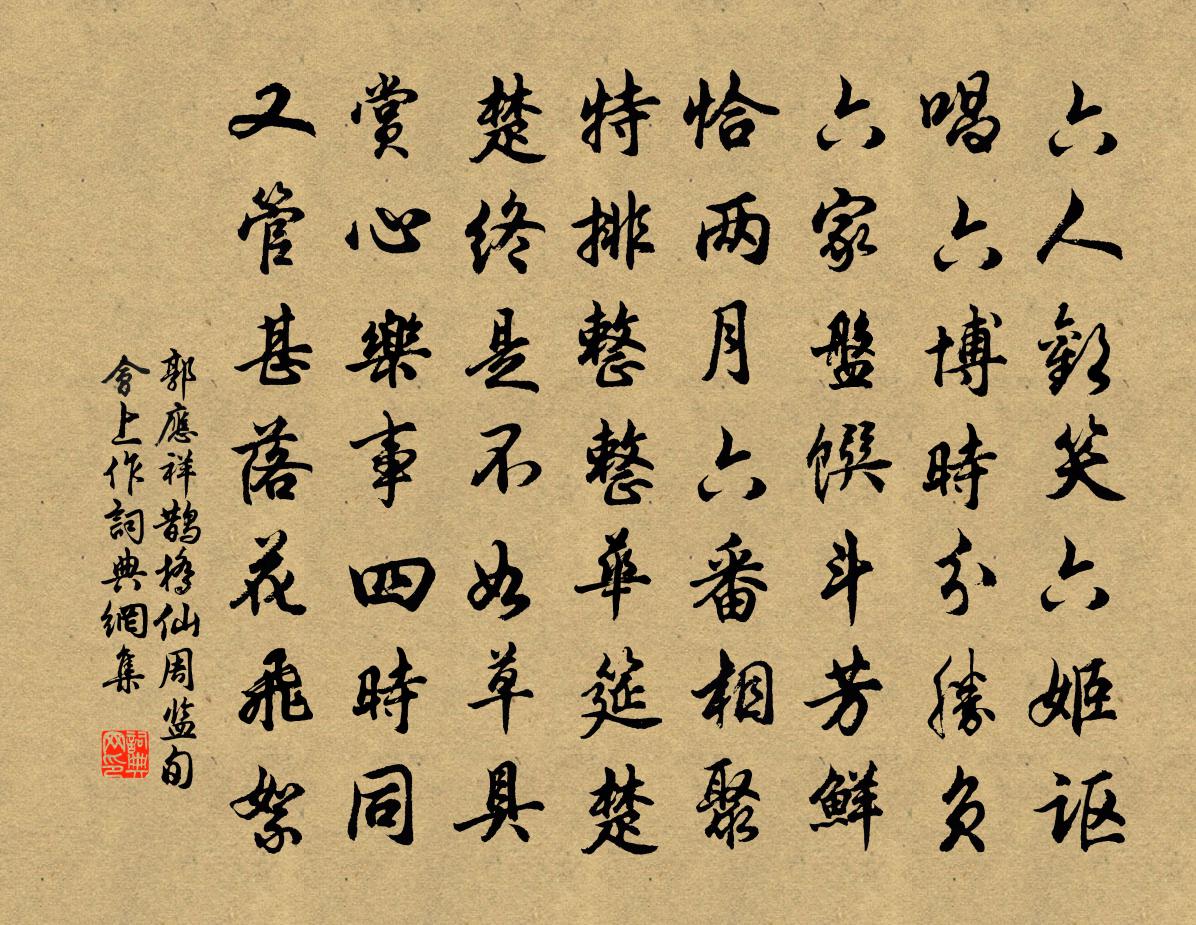 六人歡笑六姬讴
唱六博時分勝負
六家盤饌斗芳鮮
恰两月六番相聚
特排整整華筵楚
楚終是不如草具
賞心樂事四時同
又管甚落花飛絮
郭應祥鵲橋仙周监旬
會上作詞典網集
詞典
网印